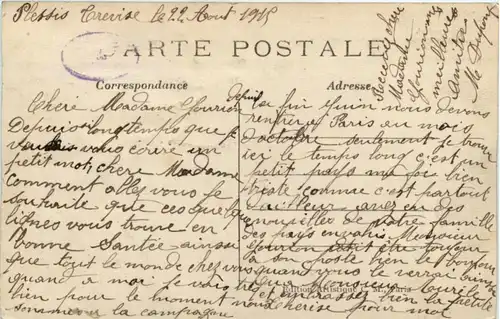 Plessis Trevise le 22 Aout 1915
CARTE POSTALE
Correspondance
Adresse
Chere Madame
Depuis longtemps que je
voulais vous écrire un
petit mot, chere Madame
comment alles vous je
souhaite que ces quelque
lignes vous trouve en
bonne Santée ainsi
que tout le monde chez vous
quand a moi je vais
bien pour le moment nous
sommes a la campagne
Depuis
la fin Juin nous devons
rentrer a Paris en mois
d'octobre seulement je trouve
ici le temps long c'est un
petit pays ma foi bien
triste comme c'est partout
d'ailleur avez eu des
nouvelles de votre famille
des pays envahis Monsieur
doit être toujour
a son poste bien le bonjour
quand vous le verrai ainsi
que Monsieur
et embrasser bien la petite
cherise pour moi
Recevez chere
Madame
meilleures
amities
M Dupont
Edition Artistique Paris